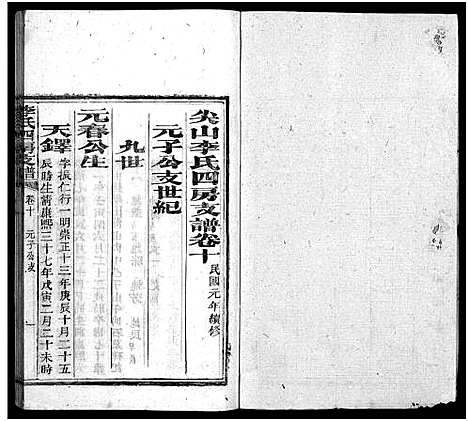 尖山李氏四房支譜卷十 民國元年續修
元子公支世紀
九世
元春公生
天鐸 字振仁行一明崇正十三年庚辰十月二十五
辰時生清康熙三十七年戊寅二月二十未時
李氏四房支譜 卷十 元子公支 一